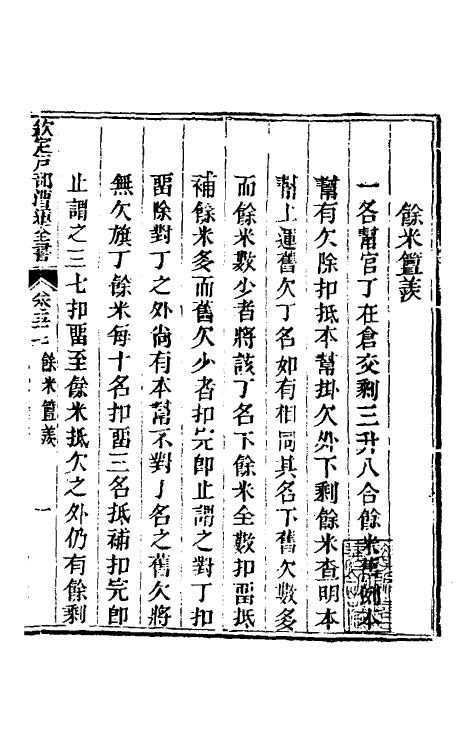 餘米簠羨
一各幫官丁在倉交剩三升八合餘米舊例本
幫有欠除扣抵本幫掛欠外下剩餘米查明本
幫上運舊欠丁名如有相同其名下舊欠數多
而餘米數少者將該丁名下餘米全數扣畱抵
補餘米多而舊欠少者扣完卽止謂之對丁扣
畱除對丁之外尚有本幫不對丁名之舊欠將
無欠旗丁餘米每十名扣畱三名抵補扣完卽
止謂之三七扣畱至餘米抵欠之外仍有餘剩
欽定戶部漕運全書
卷五二
餘米簠羨
一